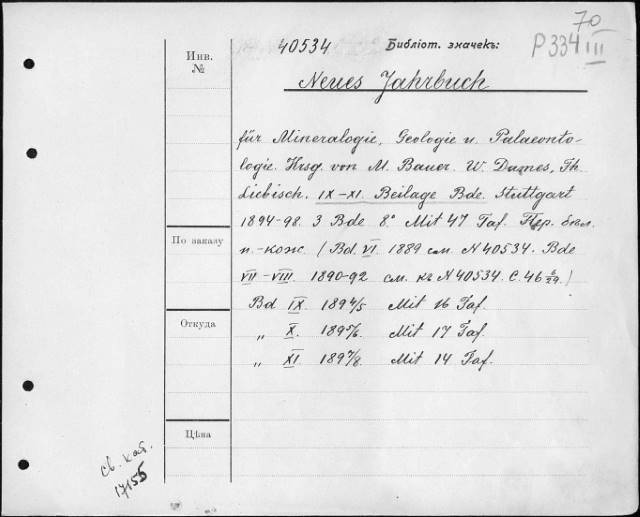 70
40534 Библіот. значекъ: P334 III
Инв. №
Neues Jahrbuch
für Mineralogie, Geologie u. Palaeonto-
logie. Hrsg. von M. Bauer. W. Dames, Th.
Liebisch. IX-XI. Beilage Bde. Stuttgart
1894-98. 3 Bde 8° Mit 47 Taf. Пер. бѣл.
п.-кож. (Bd. VI. 1889 см. N 40534. Bde
VII-VIII. 1890-92 см. къ N 40534. С. 46 /29.)
Bd IX. 1894/5 Mit 16 Taf.
„ X. 1895/6. Mit 17 Taf.
„ XI. 1897/8. Mit 14 Taf.
По заказу
Откуда
Цѣна
св. кат.
17155